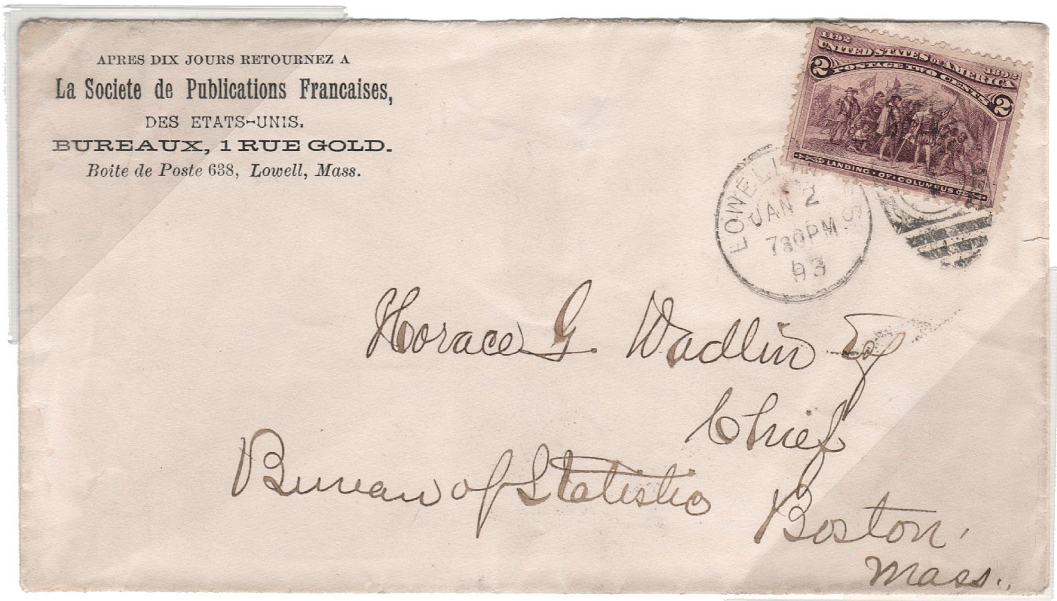 APRES DIX JOURS RETOURNEZ A
La Societe de Publications Francaises,
DES ETATS-UNIS.
BUREAUX, 1 RUE GOLD.
Boite de Poste 638, Lowell, Mass.
1492 1892
UNITED STATES OF AMERICA
POSTAGE TWO CENTS
2 2
LANDING · OF · COLUMBUS
LOWELL
JAN 2
730PM
93
Horace G. Wadlin Esq
Chief
Bureau of Statistics
Boston,
Mass.